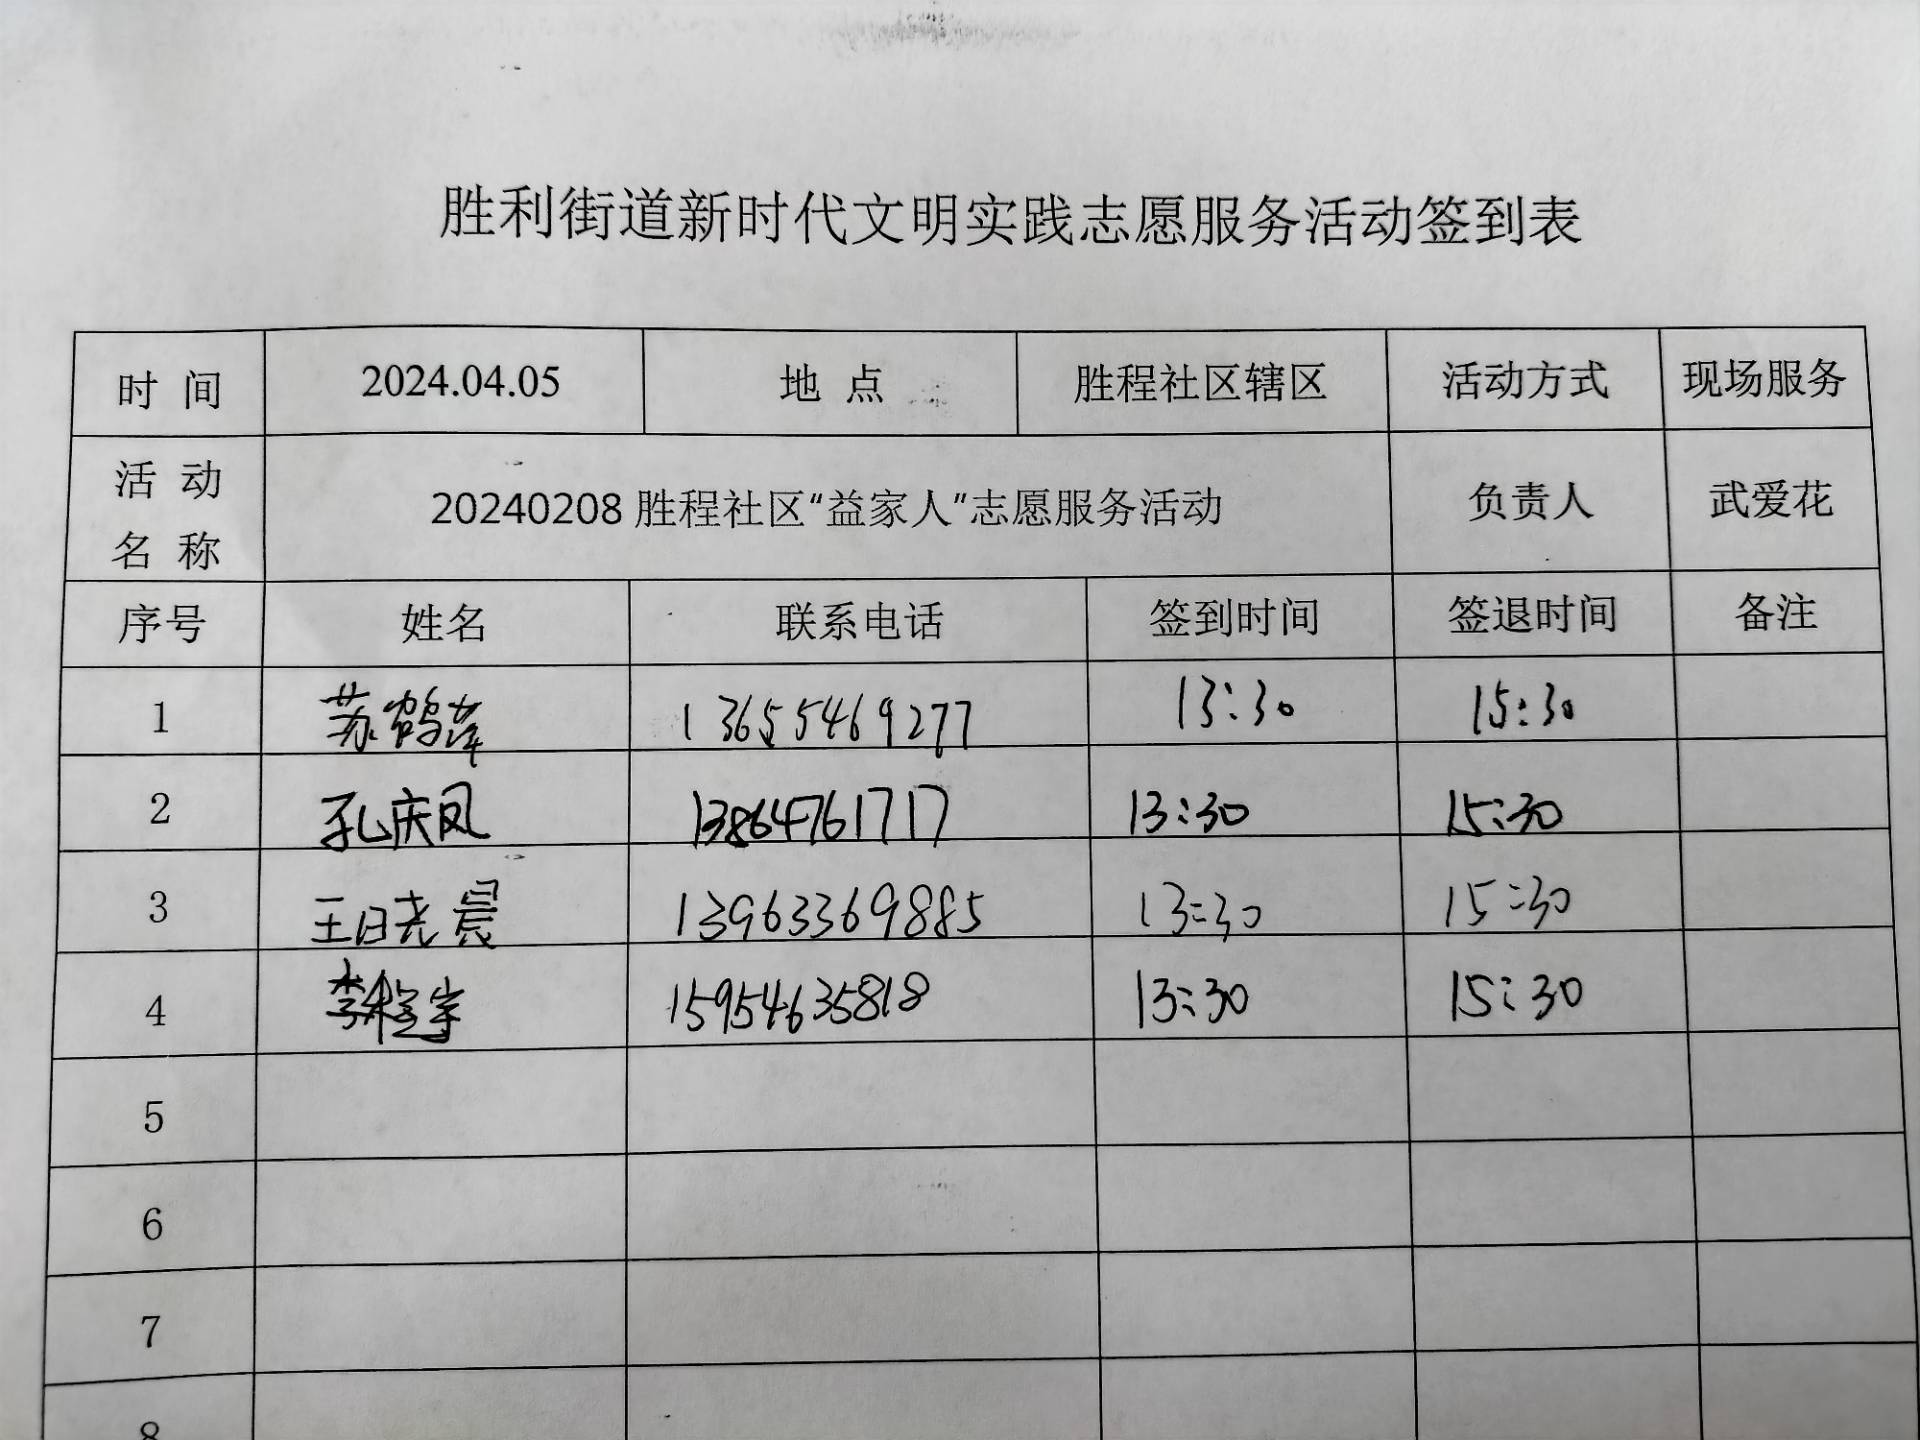 胜利街道新时代文明实践志愿服务活动签到表
时 间 2024.04.05 地 点 胜程社区辖区 活动方式 现场服务
活 动
名 称 20240208 胜程社区“益家人”志愿服务活动 负责人 武爱花
序号 姓名 联系电话 签到时间 签退时间 备注
1 苏鹤萍 13655469277 13:30 15:30
2 孔庆凤 13864761717 13:30 15:30
3 王晓晨 13963369885 13:30 15:30
4 李程宇 15954635818 13:30 15:30
5
6
7
8